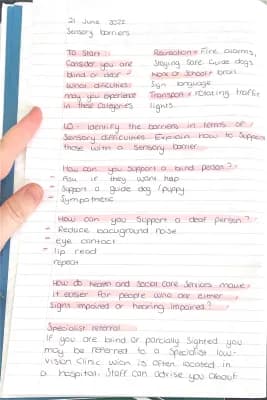 21 June 2022
Sensory barriers
To Start:
Consider you are
blind or deaf -
What difficulties
may you experience
in these categories
Recreation = Fire alarms,
Staying safe, Guide dogs
Work or School = brail
Sign language
Transport = rotating traffic
lights.
LO - Identify the barriers in terms of
Sensory difficulties. Explain how to support
those with a sensory barrier.
How can you support a blind person?
- Ask if they want help
- Support a guide dog / puppy
- Sympathetic
How can you support a deaf person?
- Reduce background noise
- Eye contact
- lip read
repeat
How do health and social care services make
it easier for people who are either
Signs impaired or hearing impaired?
Specialist referral
If you are blind or partially sighted you
may be referred to a specialist low-
vision clinic wich is often located in
a hospital. Staff can advise you about